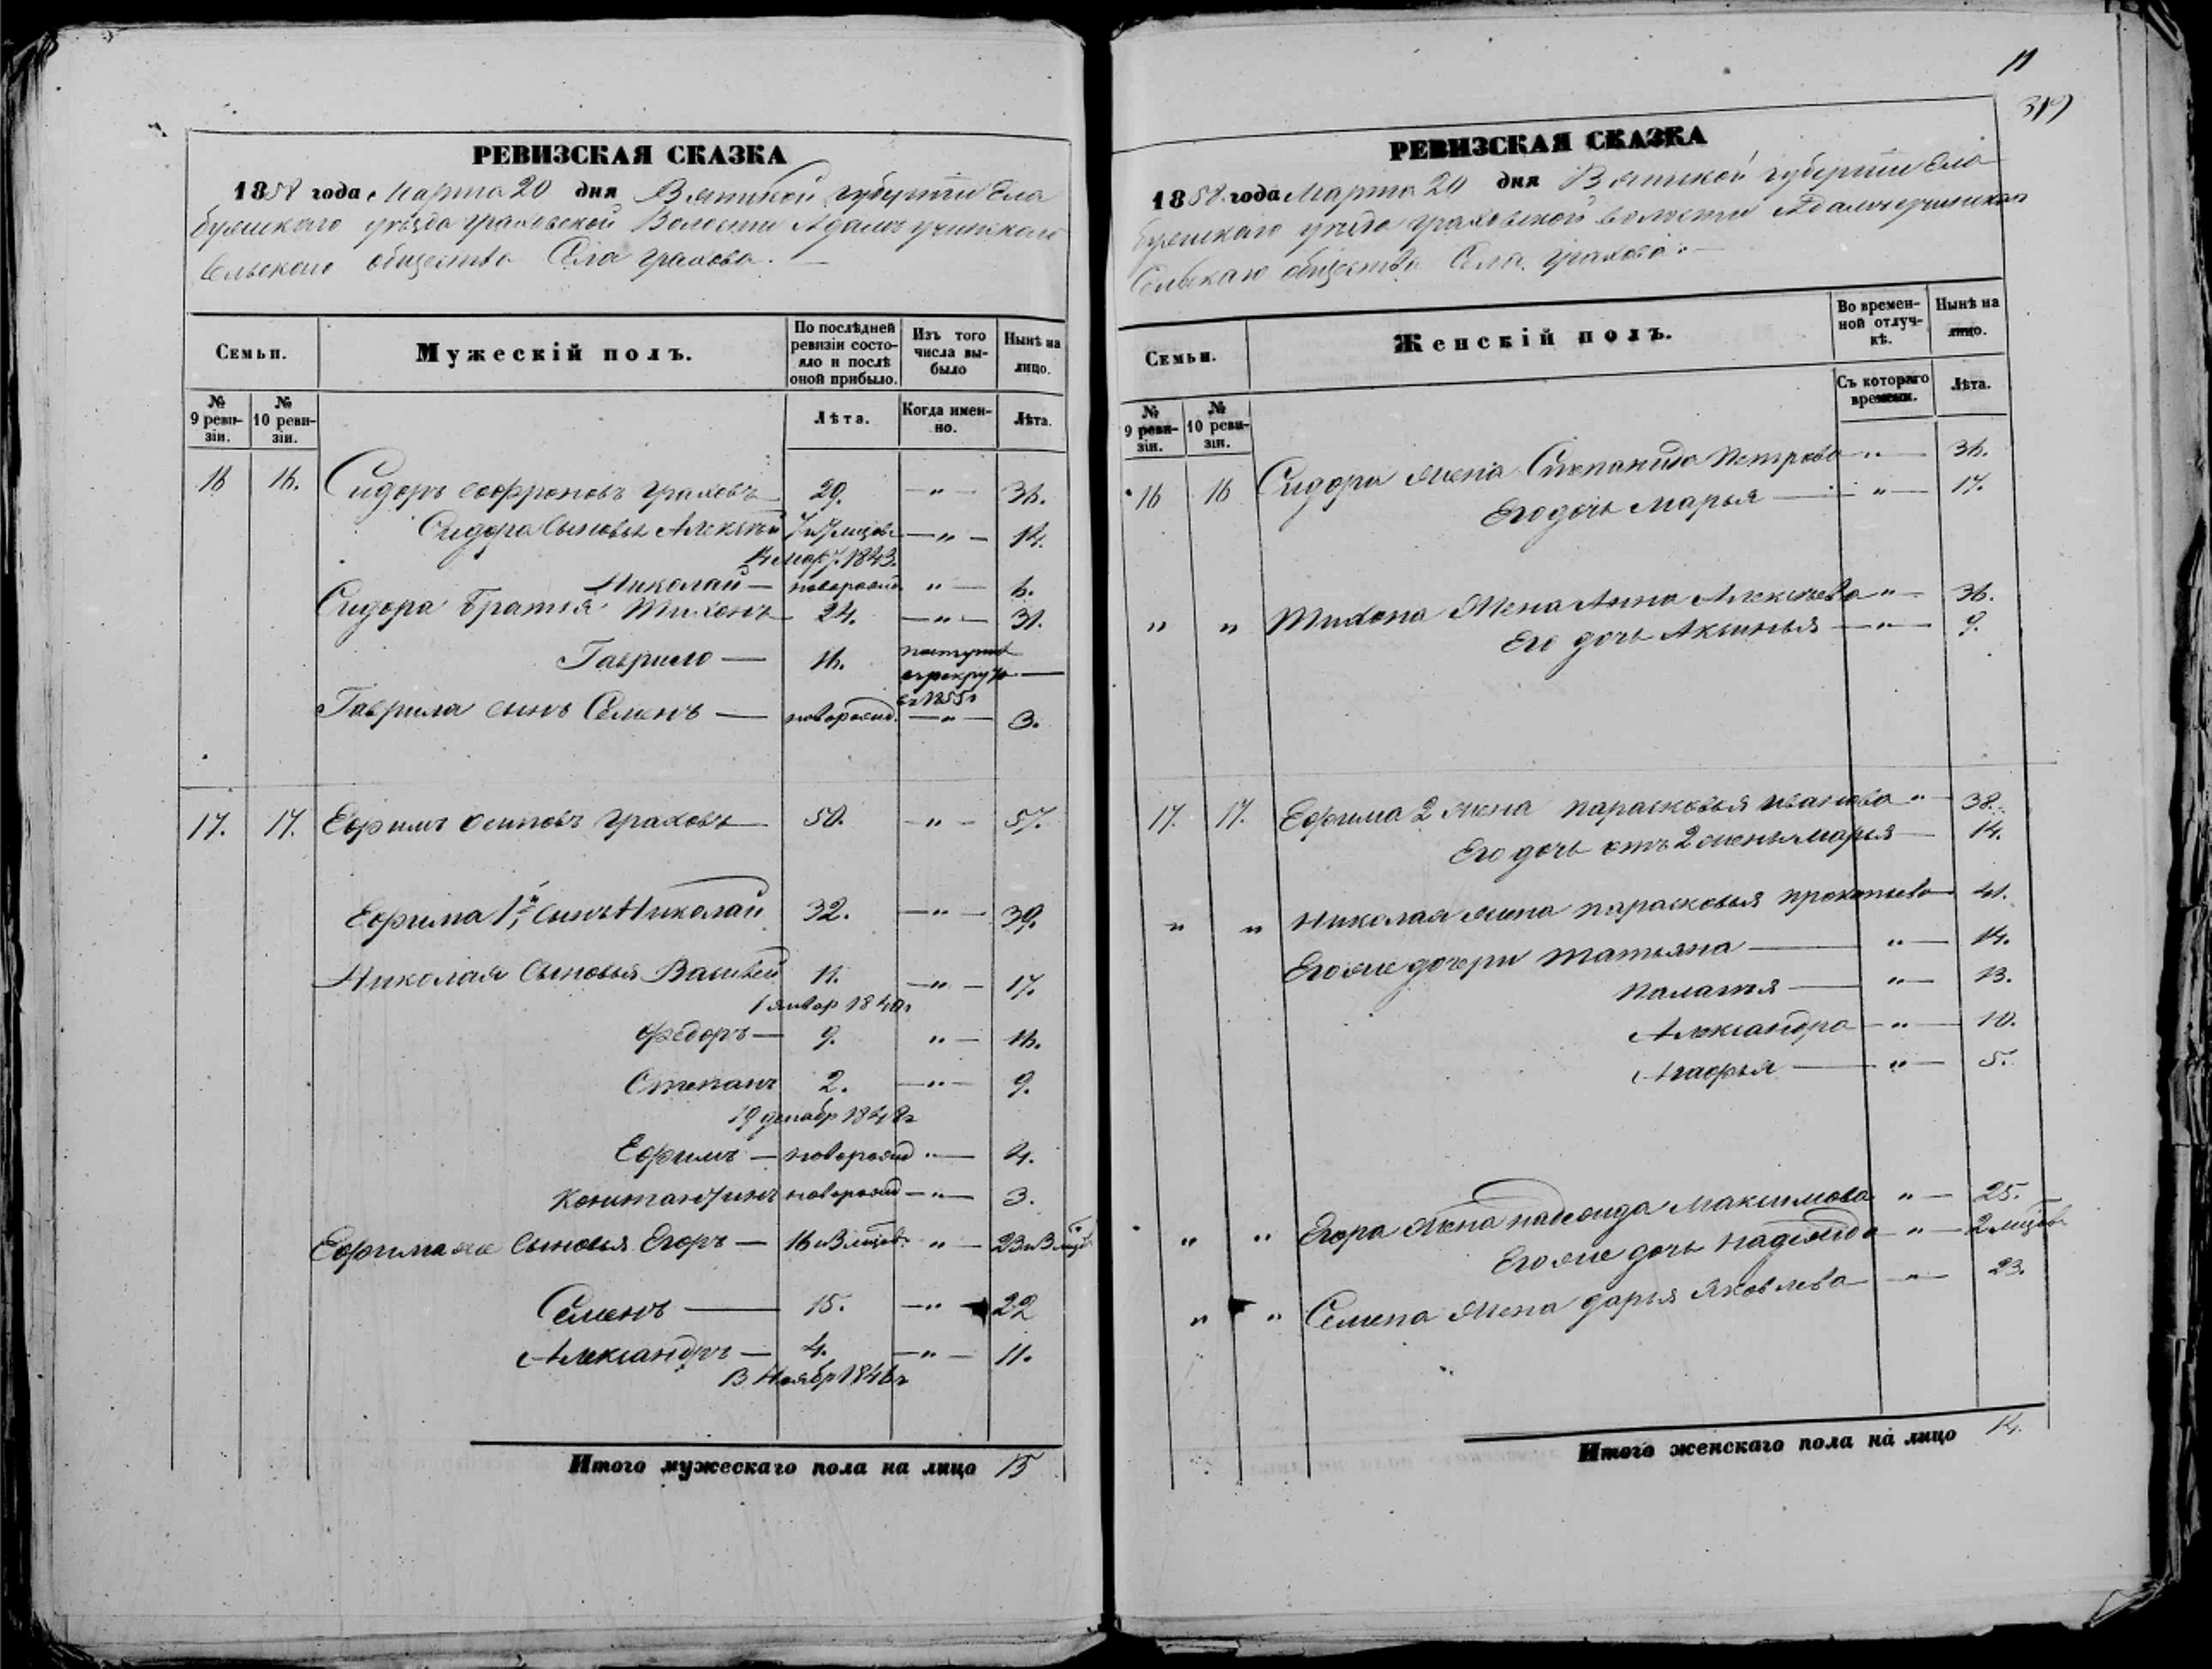 РЕВИЗСКАЯ СКАЗКА
1858 года Марта 20 дня Вятской губернии Ела
бужскаго уѣзда Граховской Волости Адамъ учинскаго
Сельскаго общества Села Грахова.
Семьи.
Мужескій полъ.
По послѣдней ревизіи состояло и послѣ оной прибыло.
Изъ того числа выбыло
Нынѣ на лицо.
№ 9 ревизіи.
№ 10 ревизіи.
Лѣта.
Когда именно.
Лѣта.
16 16. Сидоръ Софроновъ Граховъ 29. — " — 36.
Сидора Сыновья Алексѣй 7 и 7 мцовъ — " — 14.
1843.
Николай — новорожд. " — 6.
Сидора братья Тихонъ 24. — " — 31.
Гаврило — 16. поступил в рекруты в 1855 г —
Гаврила сынъ Семенъ — новорожд. — " — 3.
17. 17. Ефимъ Осиповъ Граховъ 50. — " — 57.
Ефима 1й сынъ Николай 32. — " — 39.
Николая Сыновья Василей 11. — " — 17.
1 январ 1840 г
Федоръ — 9. " — 16.
Степанъ 2. — " — 9.
19 декабр 1848 г
Ефимъ — новорожд " — 4.
Константинъ новорожд — " — 3.
Ефима же Сыновья Егоръ — 16 и 3 мцов. " — 23 и 3 мцов
Семенъ — 15. — " — 22
Александръ — 4. — " — 11.
Ноябр 1846 г
Итого мужескаго пола на лицо 15
11
319
РЕВИЗСКАЯ СКАЗКА
1858 года Марта 20 дня Вятской губернии Ела
бужскаго уѣзда Граховской волости Адамъ учинскаго
Сельскаго общества Села Грахова. —
Семьи.
Женскій полъ.
Во временной отлучкѣ.
Нынѣ на лицо.
№ 9 ревизіи.
№ 10 ревизіи.
Съ котораго времени.
Лѣта.
16 16 Сидора жена Степанида Петрова " — 36.
Его дочь Марья — " — 17.
" " Тихона Жена Анна Алексѣева " — 36.
Его дочь Аксинья — " — 9.
17. 17. Ефима 2 жена Парасковья Иванова " — 38.
Его дочь отъ 2 жены Марья — 14.
" " Николая жена Парасковья Прокопьева — 41.
Его же дочери Татьяна — " — 14.
Палагея — " — 13.
Александра — " — 10.
Агафья — " — 5.
" " Егора Жена Надежда Максимова " — 25.
Его же дочь Надежда " — 2 мцов
" " Семена Жена Дарья Яковлева — " — 23.
Итого женскаго пола на лицо 14.